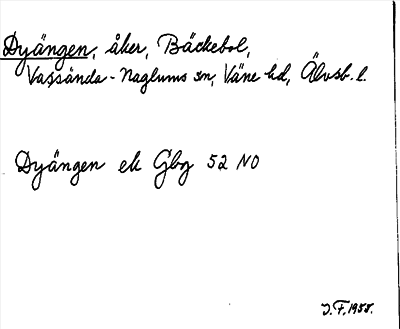 Dyängen, åker, Bäckebol,
Vassända-Naglums sn, Väne hd, Älvsb. l.
Dyängen ek Gbg 52 NO
J. F. 1955.